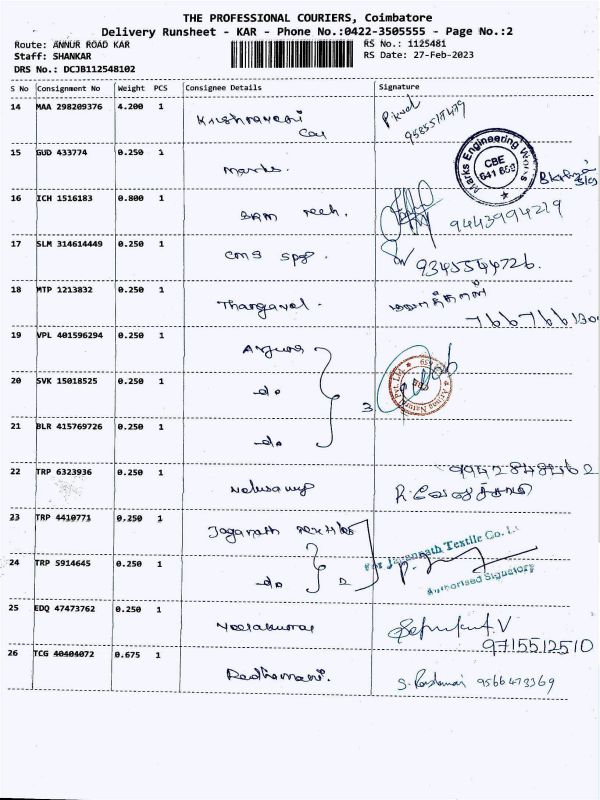 THE PROFESSIONAL COURIERS, Coimbatore
Delivery Runsheet - KAR - Phone No.:0422-3505555 - Page No.:2
Route: ANNUR ROAD KAR RS No.: 1125481
Staff: SHANKAR RS Date: 27-Feb-2023
DRS No.: DCJB112548102
S No Consignment No Weight PCS Consignee Details Signature
14 MAA 298209376 4.200 1
15 GUD 433774 0.250 1 Marks.
Marks Engineering Works
CBE
641 659
16 ICH 1516183 0.800 1 9443994219
17 SLM 314614449 0.250 1 CMS 9345544726.
18 MTP 1213832 0.250 1 Thangavel.
19 VPL 401596294 0.250 1
20 SVK 15018525 0.250 1 -do 3
21 BLR 415769726 0.250 1 -do
22 TRP 6323936 0.250 1 R. வேலுச்சாமி
23 TRP 4410771 0.250 1 Jaganath
For Jagannath Textile Co. L
24 TRP 5914645 0.250 1 -do 2
Authorised Signatory
25 EDQ 47473762 0.250 1 Veerakumar
9715512510
26 TCG 40404072 0.675 1 Radhamani. 9566473369